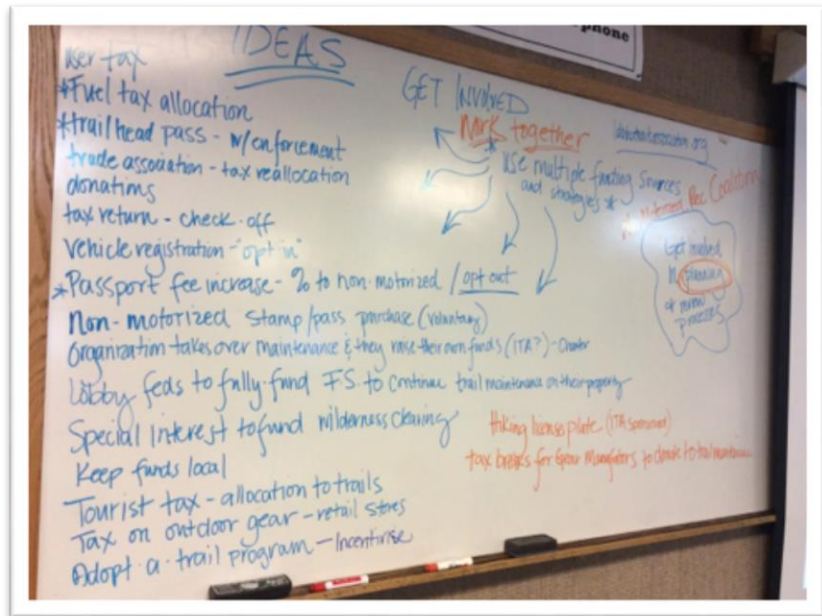 phone
IDEAS
user tax
*Fuel tax allocation
*trailhead pass - w/enforcement
trade association - tax reallocation
donations
tax return - check-off
vehicle registration - "opt in"
*Passport fee increase - % to non-motorized / opt out
Non-motorized stamp/pass purchase (voluntary)
Organization takes over maintenance & they raise their own funds (ITA?) -
Lobby feds to fully fund F.S. to continue trail maintenance on their property
Special interest to fund wilderness clearing
Keep funds local
Tourist tax - allocation to trails
Tax on outdoor gear - retail stores
Adopt-a-trail program - Incentivise
GET INVOLVED
Work together
* use multiple funding sources
and strategies *
idahotrailsassociation.org
Motorized Rec Coalition
Get involved
in planning
& review
processes
hiking license plate (ITA sponsored)
tax breaks for gear to donate to trail